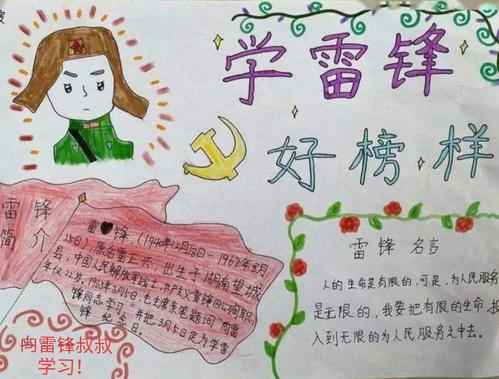 学雷锋
好榜样
雷锋
简介
雷锋,(1940年12月18日-1962年8月
15日)原名雷正兴,出生于湖南望城
县,中国人民解放军战士,共产主义
年仅22岁,1963年3月5日,毛主席
锋同志学习,并把3月5日定为学雷
锋纪念日。
雷锋 名言
人的生命是有限的,可是,为人民服务
是无限的,我要把有限的生命投
入到无限的为人民服务之中去。
向雷锋叔叔
学习!